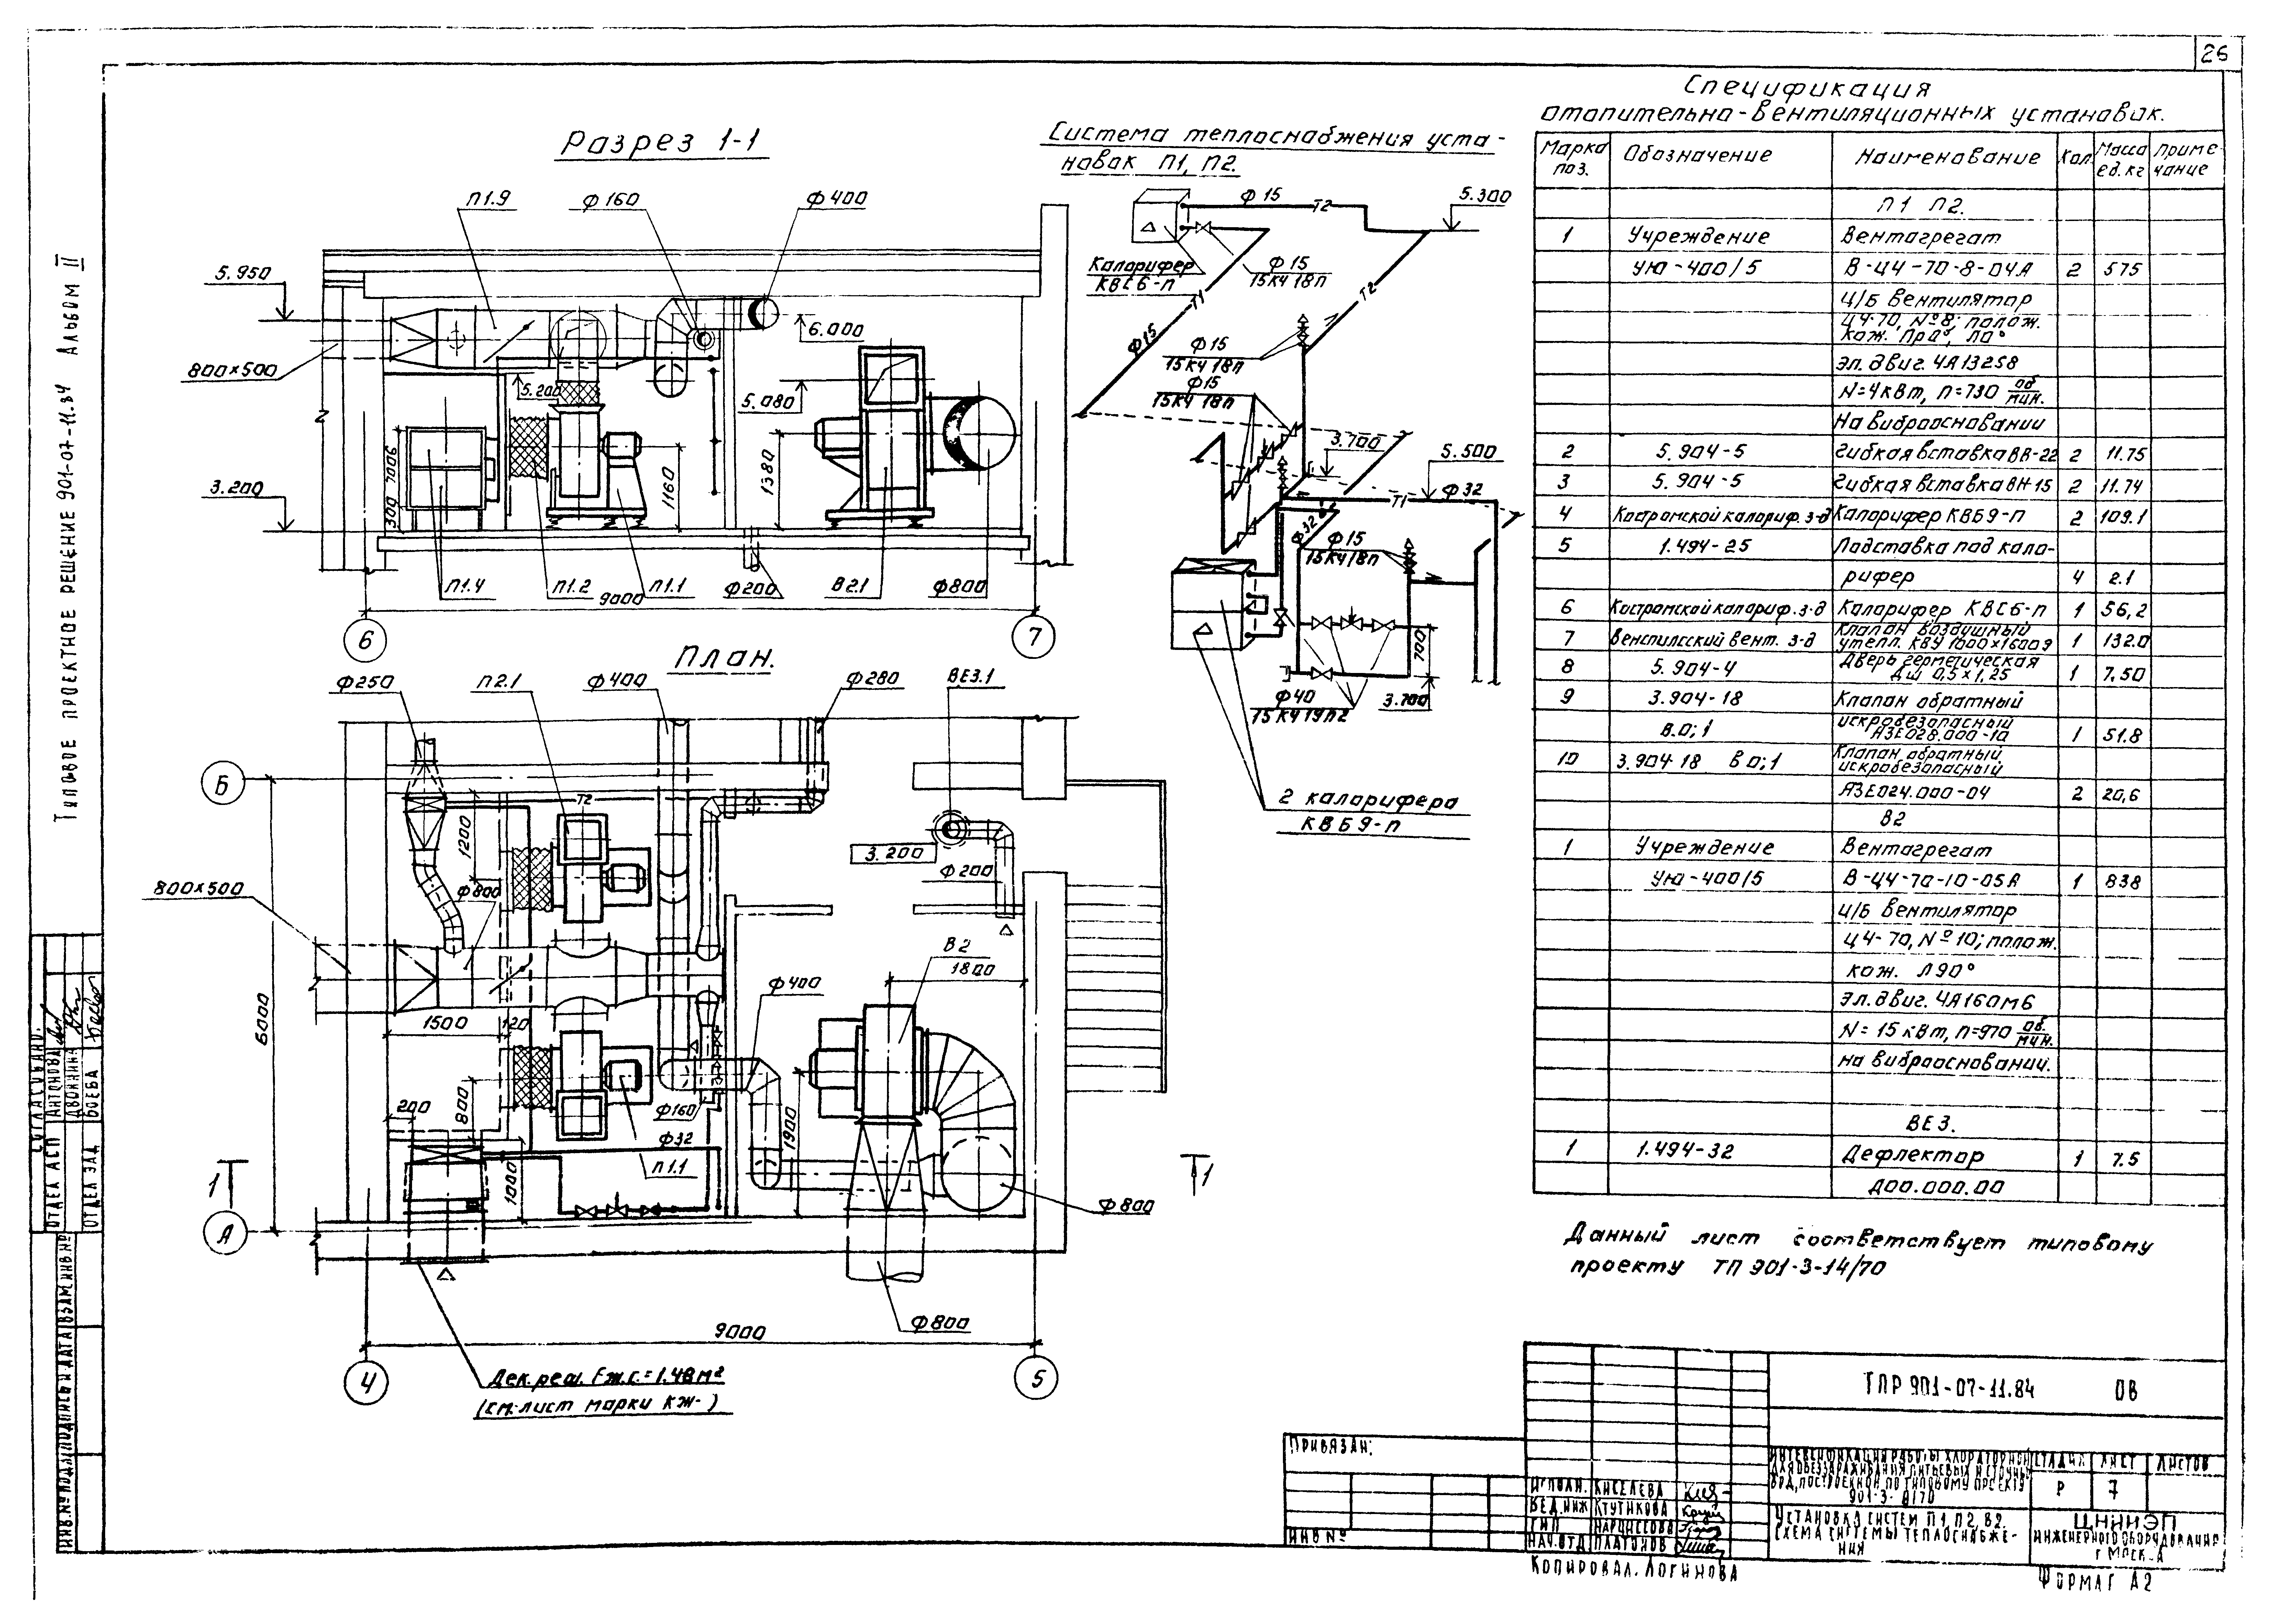 26
Типовое проектное решение 901-07-11.84 Альбом II
Разрез 1-1
П1.9
ф160
ф400
5.950
800×500
6.000
5.200
5.080
3.200
300
700б
1160
1380
П1.4
П1.2
П1.1
ф200
В2.1
ф800
9000
6
7
Система теплоснабжения уста-
новок П1, П2.
ф15
Т2
5.300
Калорифер
КВС6-п
ф15
15кч 18п
Т1
Т2
ф15
ф15
15кч 18п
ф15
15кч 18п
3.700
5.500
Т1
ф32
ф32
ф15
15кч 18п
700
ф40
15кч 19п2
3.700
2 калорифера
КВБ 9-п
План.
ф250
П2.1
ф400
ф280
ВЕ3.1
Б
Т2
1200
3.200
ф200
800×500
ф800
В2
1800
6000
ф400
1500
120
200
800
ф160
1900
ф32
П1.1
1000
1
1
А
ф800
ф800
9000
4
5
Дек. реш. Fж.с.=1.48м²
(см. лист марки КЖ- )
Спецификация
отопительно-вентиляционных установок.
Марка поз. Обозначение Наименование Кол. Масса ед. кг Примечание
П1 П2.
1 Учреждение Вентагрегат
УЮ-400/5 В-Ц4-70-8-04А 2 575
Ц/Б вентилятор
Ц4-70, №8; полож.
кож. Пр0°, Л0°
эл. двиг. 4А132S8
N=4кВт, n=730 об/мин.
На виброосновании
2 5.904-5 Гибкая вставка ВВ-22 2 11.75
3 5.904-5 Гибкая вставка ВН-15 2 11.74
4 Костромской калориф. з-д Калорифер КВБ9-п 2 109.1
5 1.494-25 Подставка под кало-
рифер 4 2.1
6 Костромской калориф. з-д Калорифер КВС6-п 1 56,2
7 Венспилсский вент. з-д Клапан воздушный
утепл. КВУ 1600×1000 1 132.0
8 5.904-4 Дверь герметическая
Дш 0,5×1,25 1 7.50
9 3.904-18 Клапан обратный
в.0; 1 искробезопасный
АЗЕ028.000-10 1 51.8
10 3.904-18 в 0; 1 Клапан обратный
искробезопасный
АЗЕ024.000-04 2 20,6
В2
1 Учреждение Вентагрегат
УЮ-400/5 В-Ц4-70-10-05А 1 838
Ц/Б вентилятор
Ц4-70, №10; полож.
кож. Л90°
эл. двиг. 4А160М6
N=15кВт, n=970 об./мин.
на виброосновании.
ВЕ3.
1 1.494-32 Дефлектор 1 7.5
Д00.000.00
Данный лист соответствует типовому
проекту ТП 901-3-14/70
Согласовано:
Отдел АСП Антонова
Двойнина
Отдел ЗАД Боева
Инв. № подл. Подпись и дата Взам. инв. №
Привязан:
Инв №
ТПР 901-07-11.84 ОВ
Интенсификация работы хлораторной
для обеззараживания питьевых и сточных
вод, построенной по типовому проекту
Стадия Лист Листов
Р 7
Исполн. Киселева
Вед. инж. Ктутикова
ГИП Нарциссова
Нач. отд. Платонов
Установка систем П1, П2, В2.
Схема системы теплоснабже-
ния
ЦНИИЭП
инженерного оборудования
г. Москва
Копировал. Логинова
Формат А2